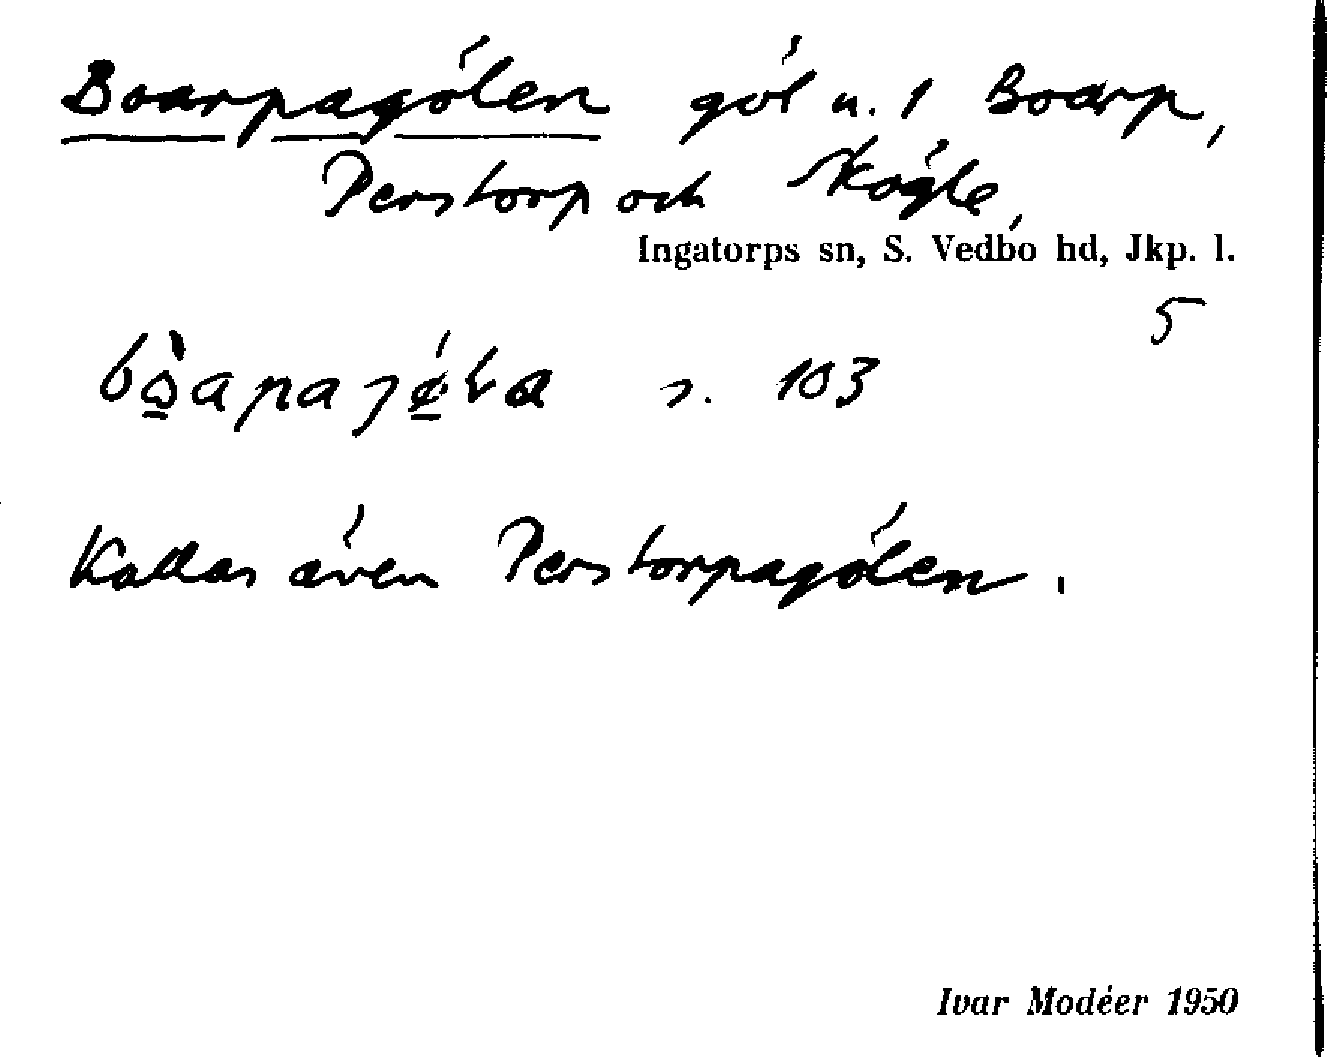 Boarpagölen göl n. 1 Boarp,
Perstorp och Skögle,
Ingatorps sn, S. Vedbo hd, Jkp. l.
5
s. 103
Kallas även Perstorpagölen.
Ivar Modéer 1950